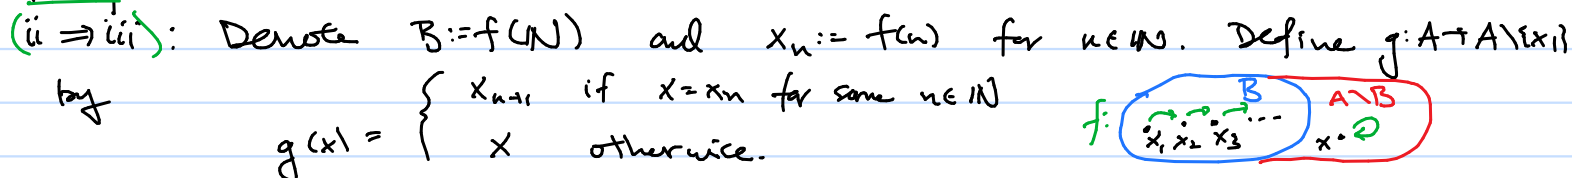 (ii ⇒ iii): Denote B := f(ℕ) and xₙ := f(n) for n∈ℕ. Define g: A → A\{x₁}
by g(x) = { xₙ₊₁ if x = xₙ for some n∈ℕ
x otherwise.
f: B A\B
x₁ x₂ x₃ ... x